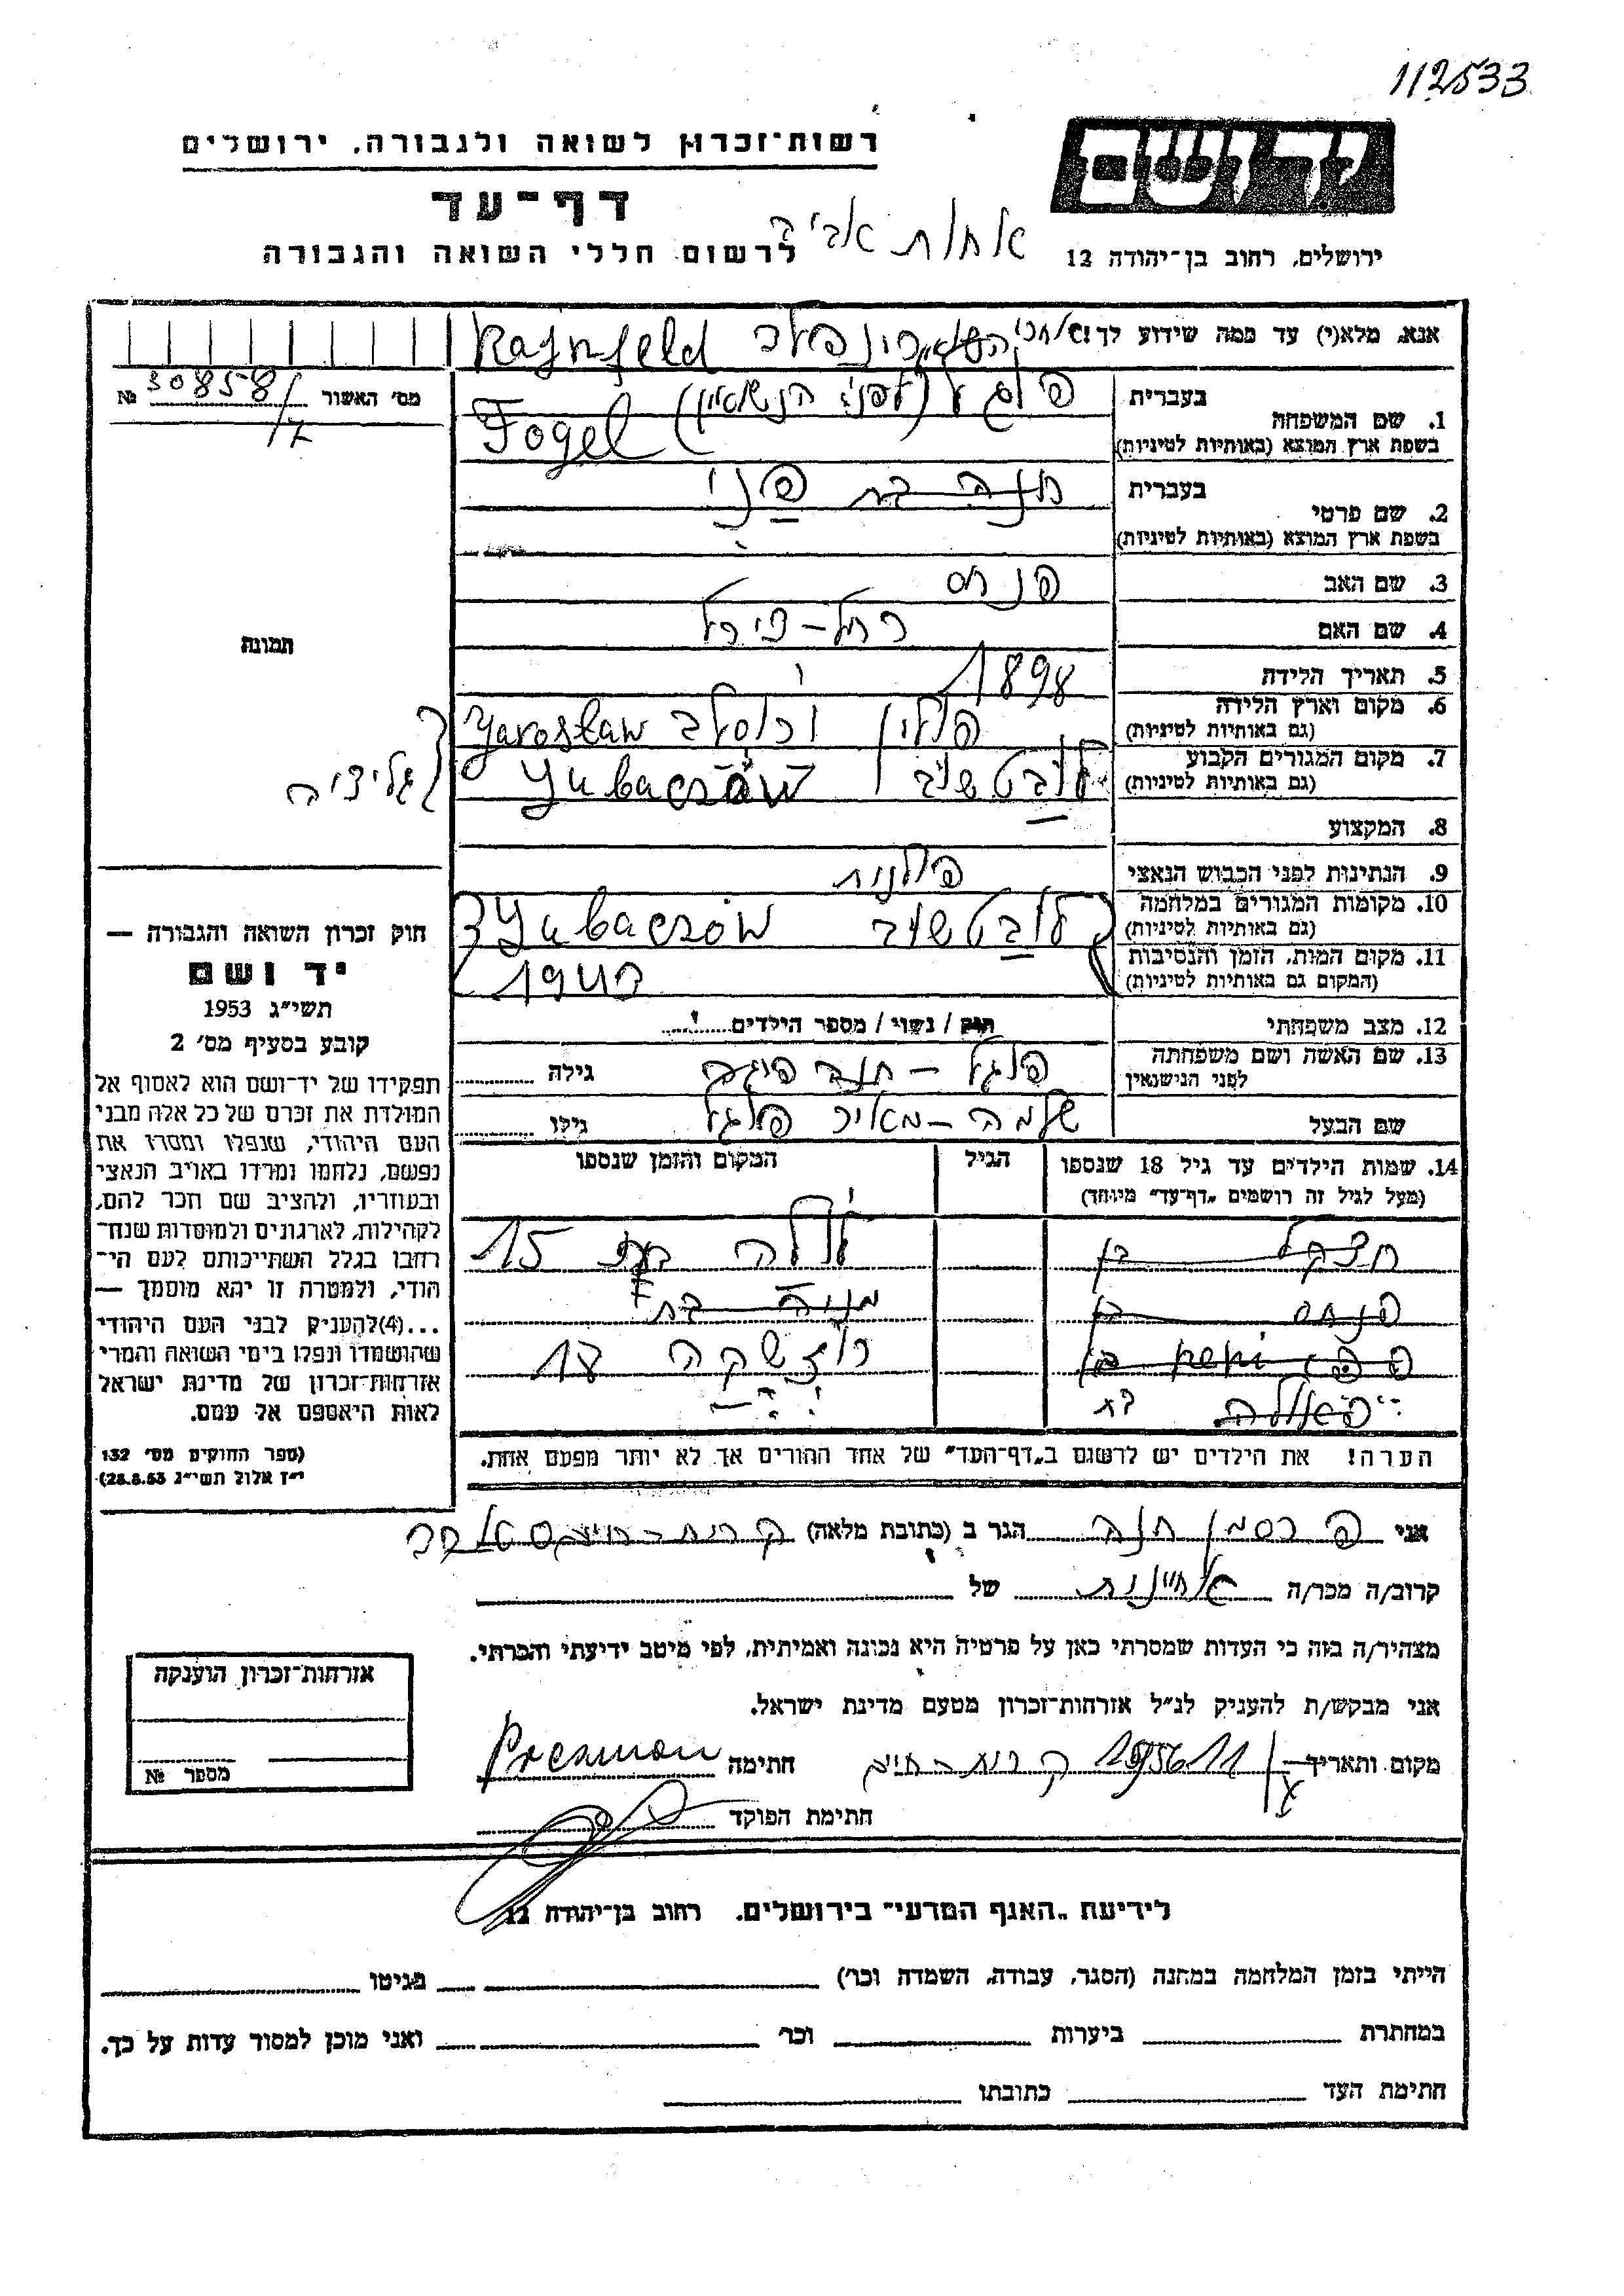 112533
יד ושם
רשות־זכרון לשואה ולגבורה, ירושלים
דף־עד
לרשום חללי השואה והגבורה
אחות אביב
ירושלים, רחוב בן־יהודה 12
אנא, מלא(י) עד כמה שידוע לך!
Raynfeld
מס׳ האשור 30858/7 №
1. שם המשפחה
בעברית פוגל (לפני הנשואין)
בשפת ארץ המוצא (באותיות לטיניות) Fogel
2. שם פרטי
בעברית חנה בת פני
בשפת ארץ המוצא (באותיות לטיניות)
3. שם האב פנחס
4. שם האם רחל – פירל
5. תאריך הלידה 1898
6. מקום וארץ הלידה (גם באותיות לטיניות) פולין ירוסלב Yarosław
7. מקום המגורים הקבוע (גם באותיות לטיניות) לובטשוב Yubaczów
גליציה
8. המקצוע
9. הנתינות לפני הכבוש הנאצי פולנית
10. מקומות המגורים במלחמה (גם באותיות לטיניות) לובטשוב Yubaczów
11. מקום המות, הזמן והנסיבות (המקום גם באותיות לטיניות) 1943
12. מצב משפחתי רוק / נשוי / מספר הילדים
13. שם האשה ושם משפחתה לפני הנישואין פוגל – חנה גילה
שם הבעל שלמה – מאיר פוגל גילו
14. שמות הילדים עד גיל 18 שנספו (מעל לגיל זה רושמים „דף־עד” מיוחד) הגיל המקום והזמן שנספו
יחזקל בן לולה בת 15
פנחס בן מניה בת
פפי pepi בן רוזשקה 17
פאולה בת
הערה! את הילדים יש לרשום ב„דף־העד” של אחד ההורים אך לא יותר מפעם אחת.
תמונה
חוק זכרון השואה והגבורה —
יד ושם
תשי״ג 1953
קובע בסעיף מס׳ 2
תפקידו של יד־ושם הוא לאסוף אל
המולדת את זכרם של כל אלה מבני
העם היהודי, שנפלו ומסרו את
נפשם, נלחמו ומרדו באויב הנאצי
ובעוזריו, ולהציב שם וזכר להם,
לקהילות, לארגונים ולמוסדות שנח־
רבו בגלל השתייכותם לעם הי־
הודי, ולמטרה זו יהא מוסמך —
...(4)להעניק לבני העם היהודי
שהושמדו ונפלו בימי השואה והמרי
אזרחות־זכרון של מדינת ישראל
לאות היאספם אל עמם.
(ספר החוקים מס׳ 132
י״ז אלול תשי״ג 28.8.53)
אני פרסמן חנה הגר ב (כתובת מלאה) קרית־חיים
קרוב/ה מכר/ה אחיינית של
מצהיר/ה בזה כי העדות שמסרתי כאן על פרטיה היא נכונה ואמיתית, לפי מיטב ידיעתי והכרתי.
אני מבקש/ת להעניק לנ״ל אזרחות־זכרון מטעם מדינת ישראל.
מקום ותאריך 1956 11 קרית־חיים חתימה Presman
חתימת הפוקד
אזרחות־זכרון הוענקה
מספר №
לידיעת „האגף המדעי” בירושלים. רחוב בן־יהודה 12
הייתי בזמן המלחמה במחנה (הסגר, עבודה, השמדה וכו׳) בגיטו
במחתרת ביערות וכו׳ ואני מוכן למסור עדות על כך.
חתימת העד כתובתו